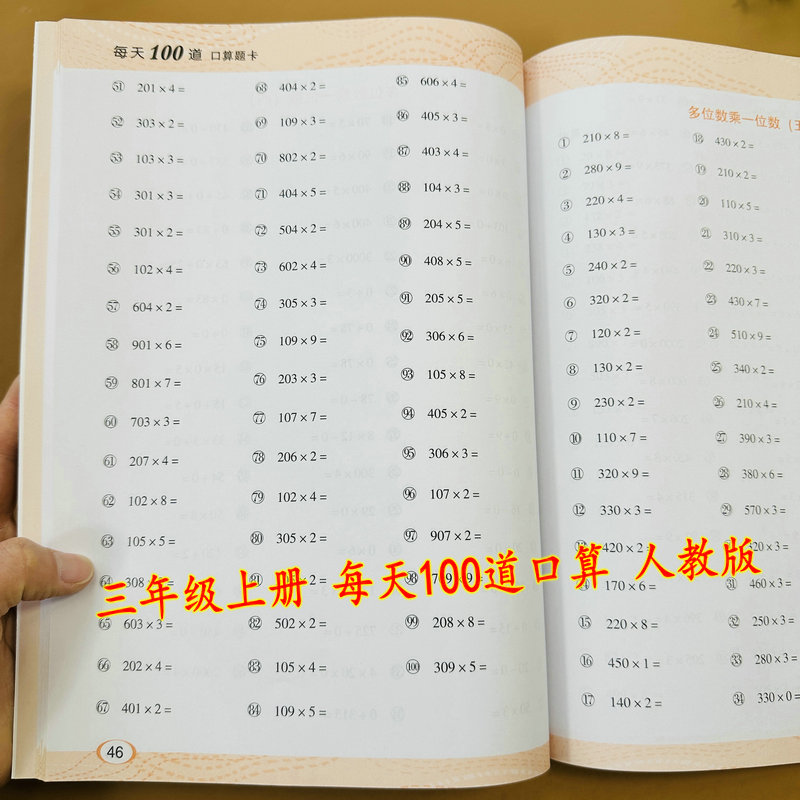 每天100道 口算题卡
51 201×4=
52 303×2=
53 103×3=
54 301×3=
55 301×2=
56 102×4=
57 604×2=
58 901×6=
59 801×7=
60 703×3=
61 207×4=
62 102×8=
63 105×5=
64 308
65 603×3=
66 202×4=
67 401×2=
68 404×2=
69 109×3=
70 802×2=
71 404×5=
72 504×2=
73 602×4=
74 305×3=
75 109×9=
76 203×3=
77 107×7=
78 206×2=
79 102×4=
80 305×2=
81 ×2=
82 502×2=
83 105×4=
84 109×5=
85 606×4=
86 405×3=
87 403×4=
88 104×3=
89 204×5=
90 408×5=
91 205×5=
92 306×6=
93 105×8=
94 405×2=
95 306×3=
96 107×2=
97 907×2=
98
99 208×8=
100 309×5=
46
多位数乘一位数
① 210×8=
② 280×9=
③ 220×4=
④ 130×3=
⑤ 240×2=
⑥ 320×2=
⑦ 120×2=
⑧ 130×2=
⑨ 230×2=
⑩ 110×7=
⑪ 320×9=
⑫ 330×3=
420×2=
170×6=
⑮ 220×8=
⑯ 450×1=
⑰ 140×2=
⑱ 430×2=
⑲ 210×2=
⑳ 110×5=
㉑ 310×3=
㉒ 220×3=
㉓ 430×7=
㉔ 510×9=
㉕ 340×2=
㉖ 210×4=
㉗ 390×3=
㉘ 380×6=
㉙ 570×3=
320×3=
㉛ 460×3=
㉜ 250×3=
㉝ 280×3=
㉞ 330×0=
三年级上册 每天100道口算 人教版